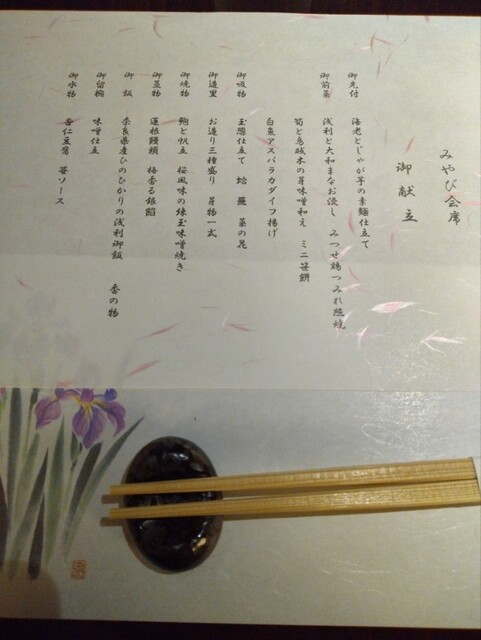 みやび会席
御献立
御先付 海老とじゃが芋の素麺仕立て
御前菜 浅利と大和まなお浸し みつせ鶏つみれ照焼
筍と烏賊木の芽味噌和え ミニ笹餅
白魚アスパラカダイフ揚げ
御吸物 玉葱仕立て 蛤 蕨 菜の花
御造里 お造り三種盛り 芽物一式
御焼物 鮑と帆立 桜風味の練玉味噌焼き
御蓋物 蓮根饅頭 梅香る銀餡
御飯 奈良県産ひのひかりの浅利御飯 香の物
御留椀 味噌仕立
御水物 杏仁豆腐 苺ソース